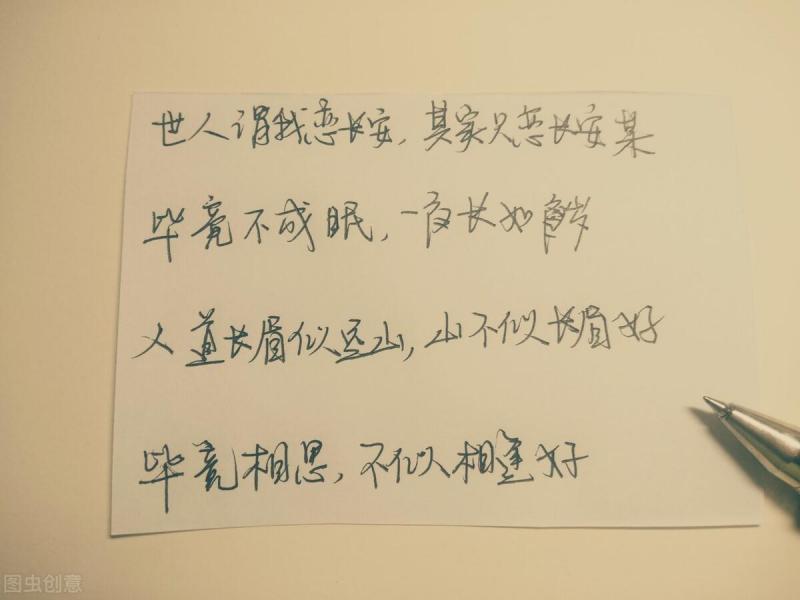 世人谓我恋长安，其实只恋长安某
毕竟不成眠，一夜长如岁
人道长眉似远山，山不似长眉好
毕竟相思，不似相逢好
图虫创意